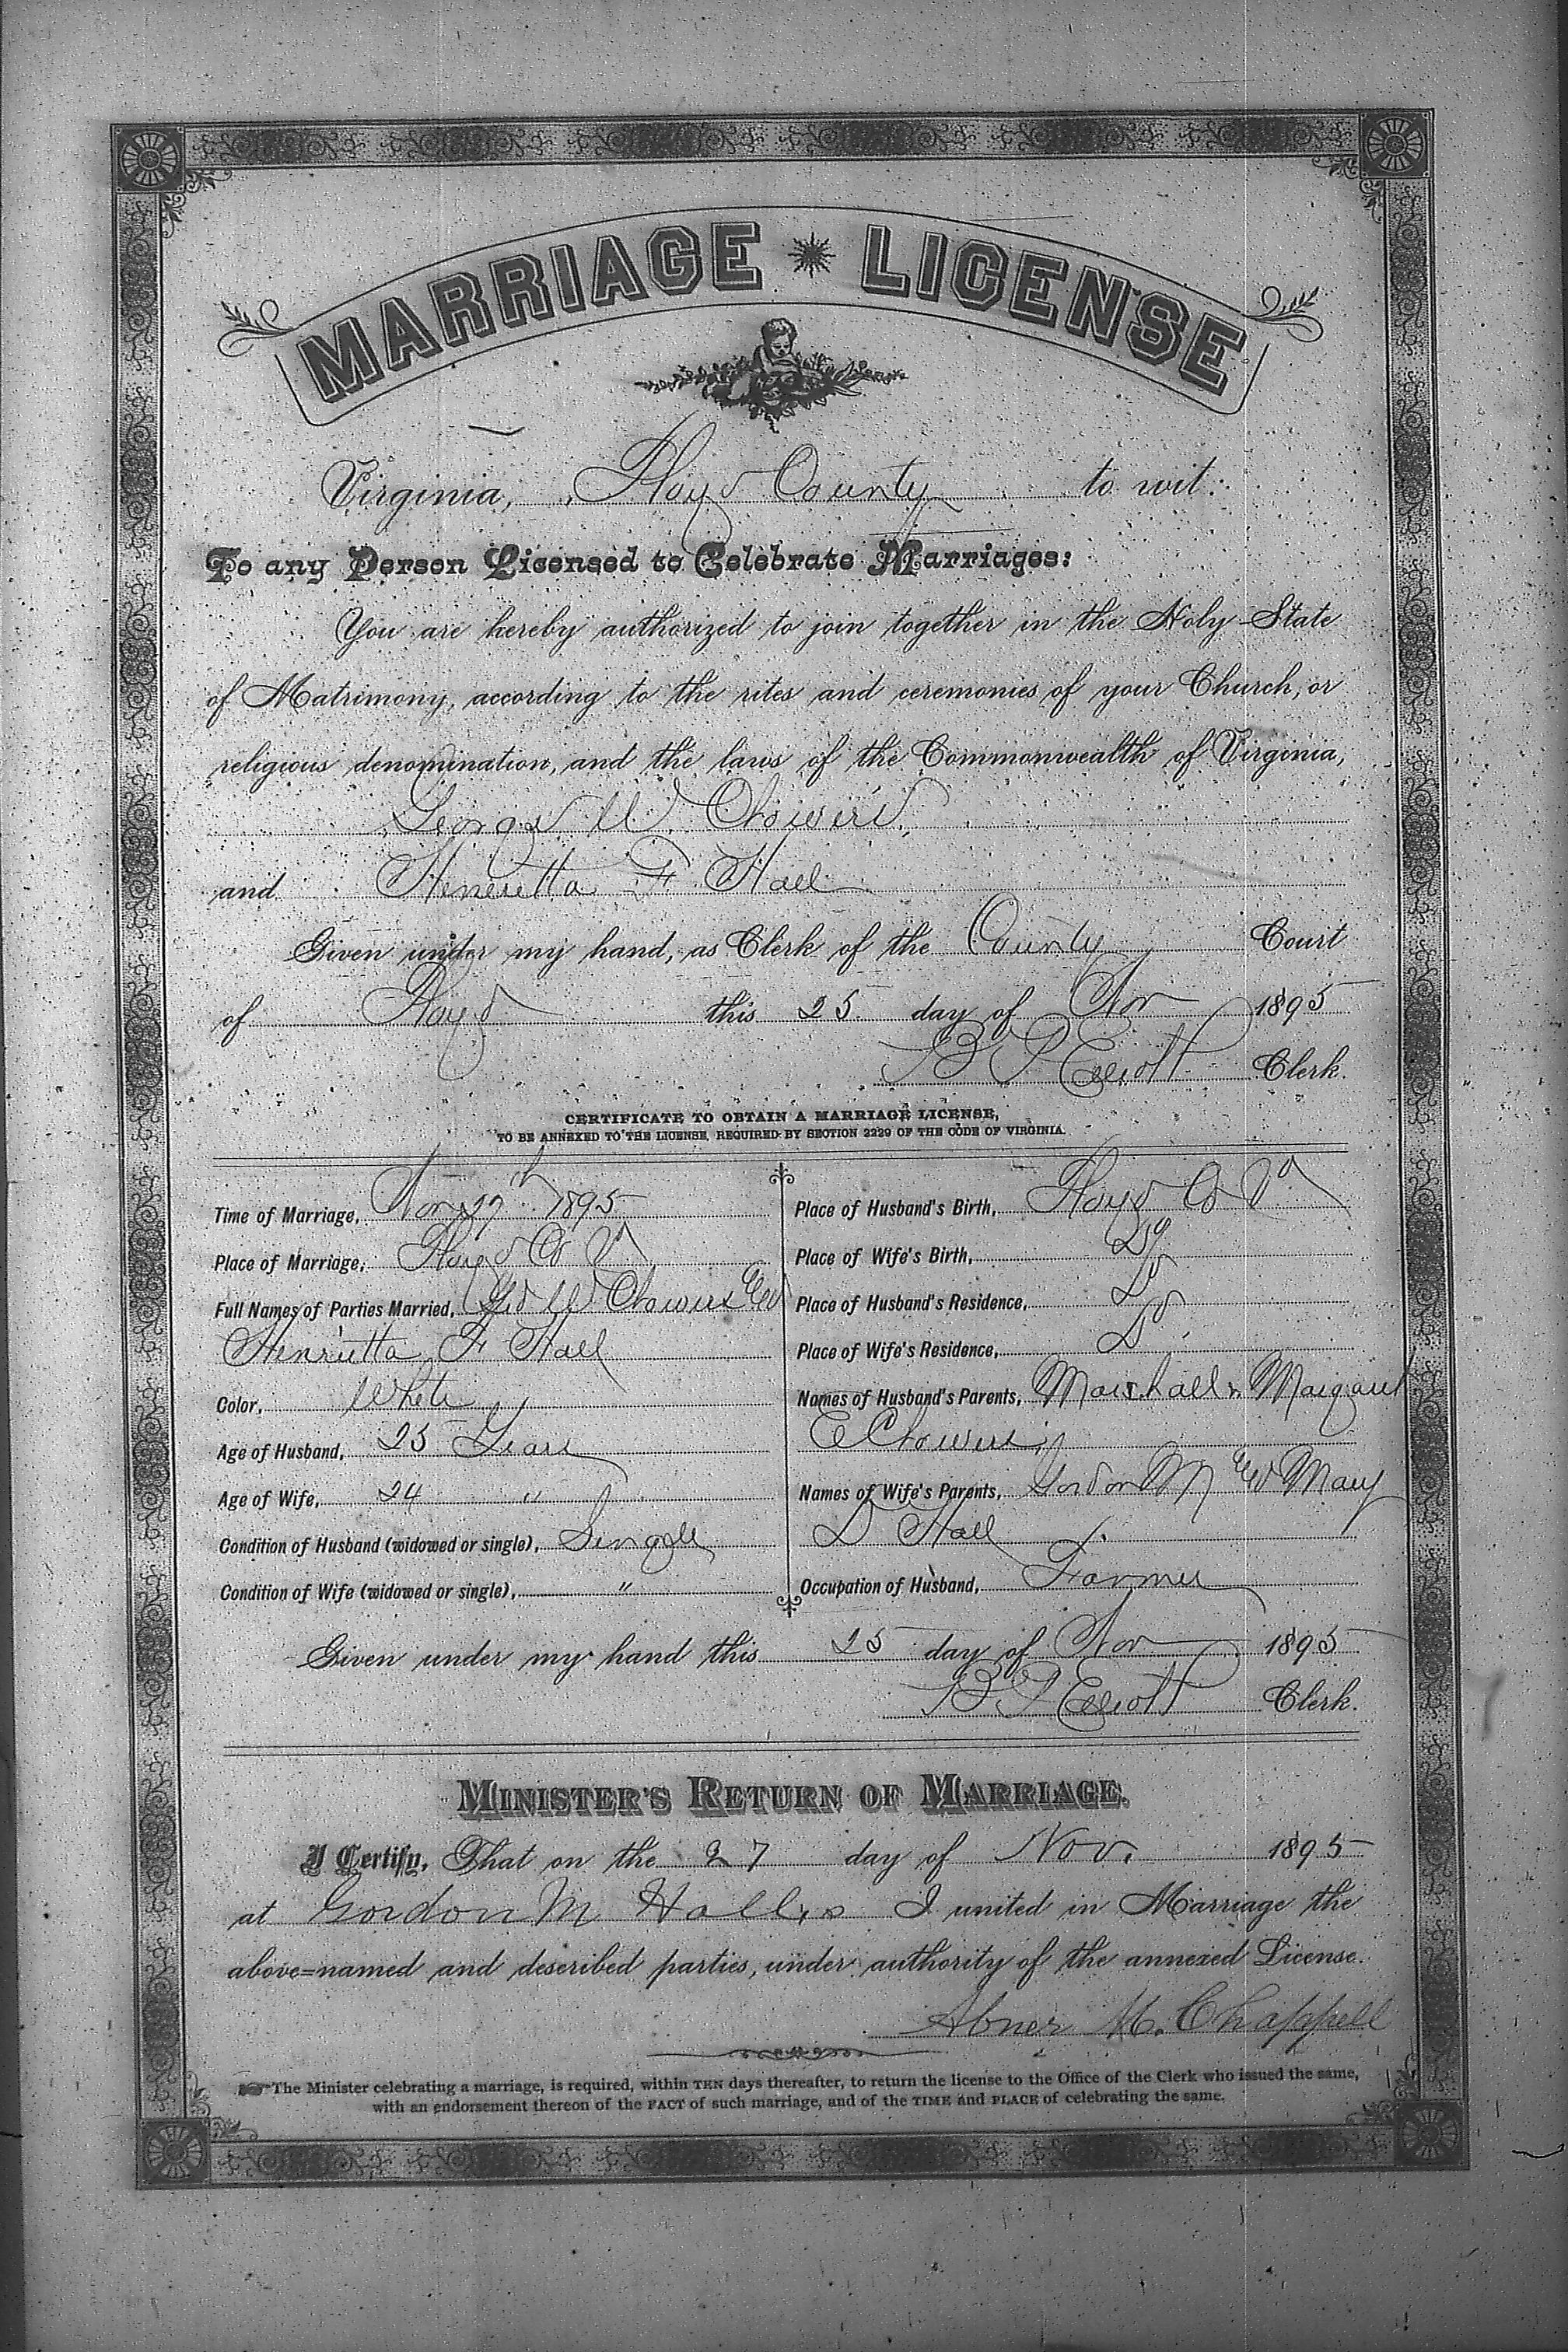 MARRIAGE LICENSE
Virginia, Floyd County to wit:
To any Person Licensed to Celebrate Marriages:
You are hereby authorized to join together in the Holy State
of Matrimony, according to the rites and ceremonies of your Church, or
religious denomination, and the laws of the Commonwealth of Virginia,
George W. Showers
and Henrietta F Hall
Given under my hand, as Clerk of the County Court
of Floyd this 25 day of Nov 1895
B P Elliott Clerk.
CERTIFICATE TO OBTAIN A MARRIAGE LICENSE,
TO BE ANNEXED TO THE LICENSE, REQUIRED BY SECTION 2229 OF THE CODE OF VIRGINIA.
Time of Marriage, Nov 27th 1895
Place of Marriage, Floyd Co Va
Full Names of Parties Married, Geo W Showers &
Henrietta F Hall
Color, White
Age of Husband, 25 Years
Age of Wife, 24 "
Condition of Husband (widowed or single), Single
Condition of Wife (widowed or single), "
Place of Husband's Birth, Floyd Co Va
Place of Wife's Birth, Do
Place of Husband's Residence, Do
Place of Wife's Residence, Do
Names of Husband's Parents, Marshall & Margaret
E Showers
Names of Wife's Parents, Gordon M & Mary
D Hall
Occupation of Husband, Farmer
Given under my hand this 25 day of Nov 1895
B P Elliott Clerk.
MINISTER'S RETURN OF MARRIAGE.
I Certify, That on the 27 day of Nov. 1895
at Gordon M Hall,s I united in Marriage the
above=named and described parties, under authority of the annexed License.
Abner M. Chappell
The Minister celebrating a marriage, is required, within TEN days thereafter, to return the license to the Office of the Clerk who issued the same,
with an endorsement thereon of the FACT of such marriage, and of the TIME and PLACE of celebrating the same.